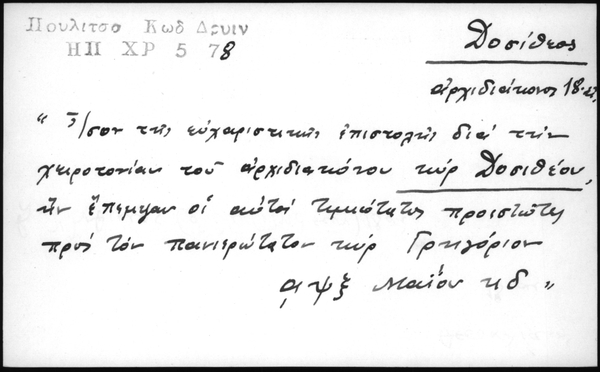 Πουλιτσο Κωδ Δρυιν
ΗΠ ΧΡ 5 78
Δοσίθεος
ἀρχιδιάκονος 18.
" Ἴσον τῆς εὐχαριστικῆς ἐπιστολῆς διά τήν
χειροτονίαν τοῦ ἀρχιδιακόνου κύρ Δοσιθέου,
ἥν ἔπεμψαν οἱ αὐτοί τιμιώτατοι προεστῶτες
πρός τόν πανιερώτατον κύρ Γρηγόριον
αψξ Μαΐου κδ "